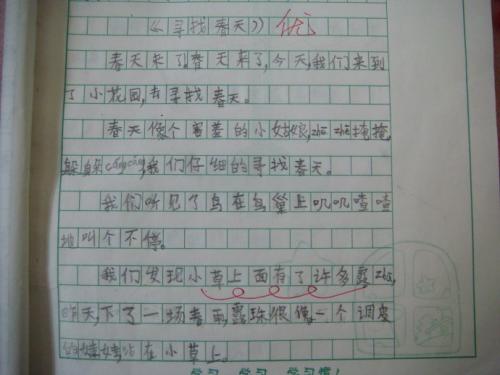 《寻找春天》 优
春天来了,春天来了,今天,我们来到
了小花园,去寻找春天。
春天像个害羞的小姑娘,zhē zhē掩掩,
躲躲cángcáng,我们仔细的寻找春天。
我们听见了鸟在鸟巢上叽叽喳喳
地叫个不停。
我们发现小草上面有了许多露zhū,
昨天,下了一场春雨,露珠很像一个调皮
的娃娃站在小草上。
学习 学习 学习